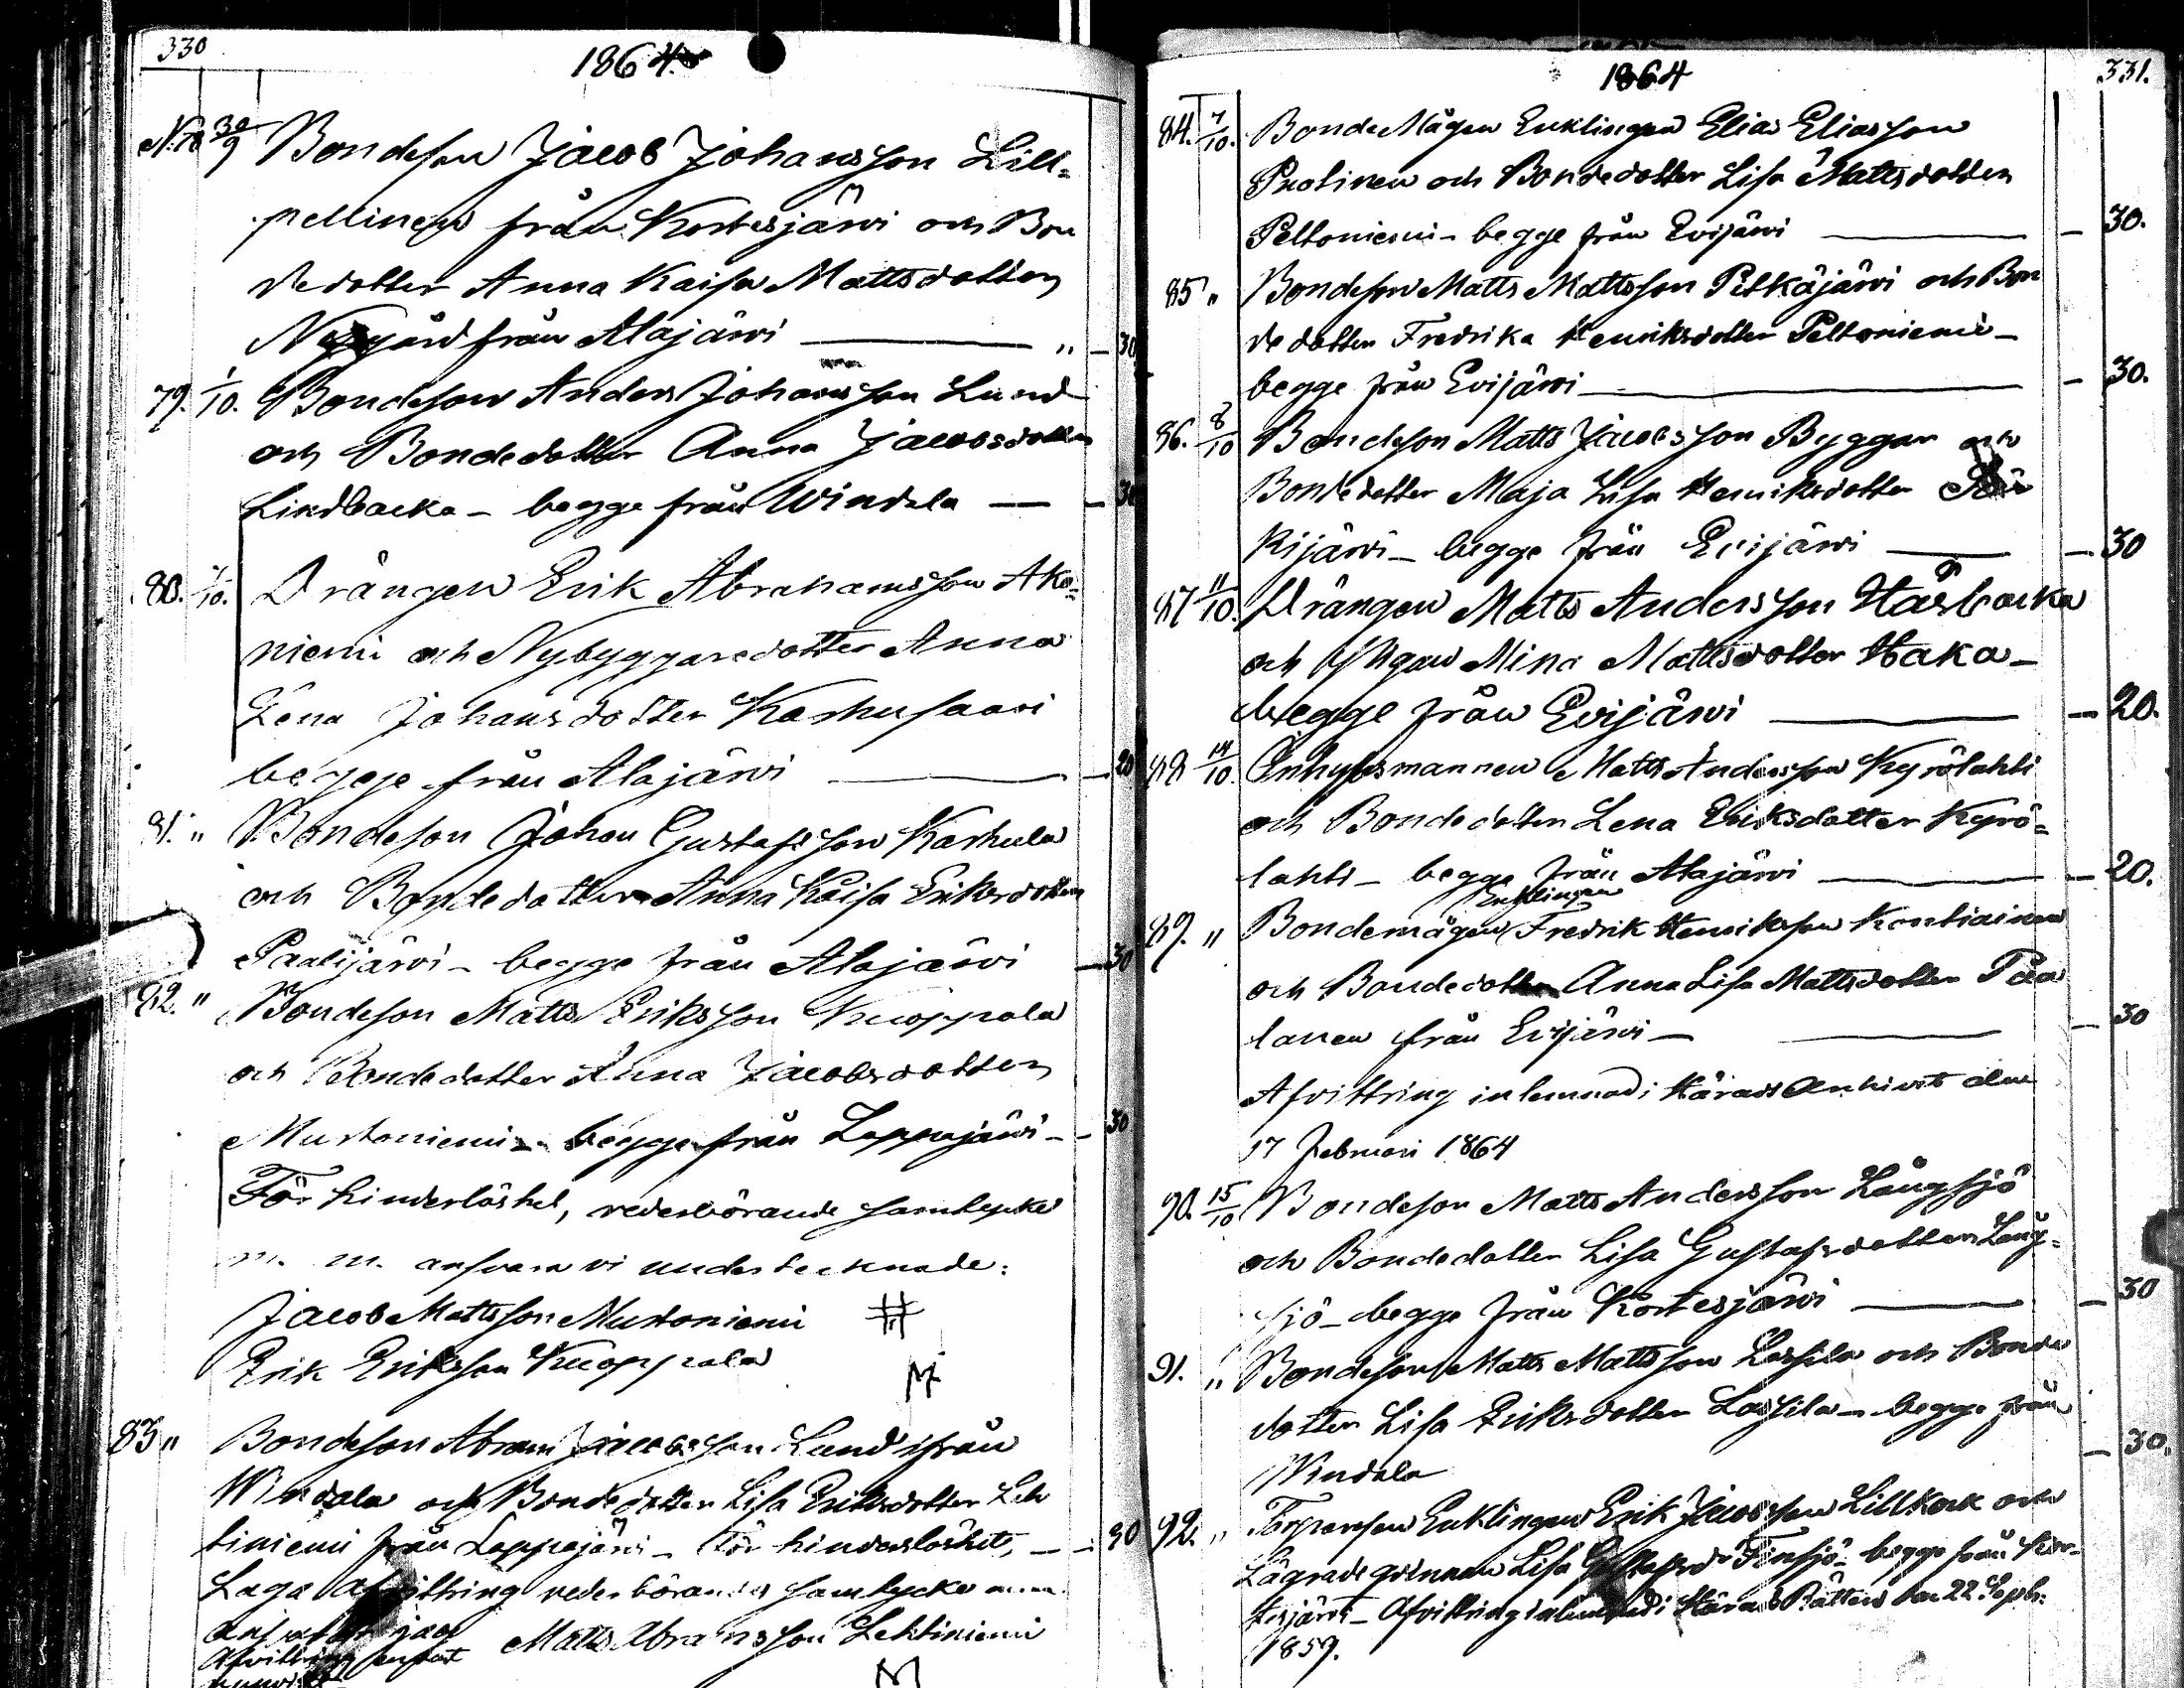 330
1864
N:78 30/9 Bondeson Jacob Johansson Lill-
pellinen från Kortesjärvi och Bon
dedotter Anna Kaisa Mattsdotter
Nygård från Alajärvi — " — 30
79. 1/10. Bondeson Anders Johansson Lund
och Bondedotter Anna Jacobsdotter
Lindbacka – begge från Windala — – 30
80. 1/10. Drängen Erik Abrahamsson Ako-
niemi och Nybyggaredotter Anna
Lena Johansdotter Karhusaari
begge från Alajärvi — – 20
81. " Bondeson Johan Gustafsson Karhula
och Bondedotter Anna Kaisa Eriksdotter
Paalijärvi – begge från Alajärvi — 30
82. " Bondeson Matts Eriksson Kuoppala
och Bondedotter Anna Jacobsdotter
Mustoniemi – begge från Lappajärvi – – 30
För hinderlöshet, vederbörande samtycke
m. m. ansvara vi undertecknade:
Jacob Mattsson Mustoniemi
Erik Eriksson Kuoppala
83 " Bondeson Abram Jacobsson Lund ifrån
Windala och Bondedotter Lisa Eriksdotter Leh
tiniemi från Lappajärvi – För hinderlöshet, – – 30
Laga afvittring vederbörandes samtycke m.m.
ansvarar jag Matts Abramsson Lehtiniemi
Afvittring
1864
331.
84. 7/10. BondeMågen Enklingen Elias Eliasson
Puolinen och Bondedotter Lisa Mattsdotter
Peltoniemi – begge från Evijärvi — – 30.
85 " Bondeson Matts Mattsson Pitkäjärvi och Bon
dedotter Fredrika Henriksdotter Peltoniemi –
begge från Evijärvi — – 30.
86. 8/10 Bondeson Matts Jacobsson Byggar och
Bondedotter Maja Lisa Henriksdotter
kijärvi – begge från Evijärvi — – 30
87 11/10. Drängen Matts Andersson Hasbacka
och Pigan Mina Mattsdotter Haka –
begge från Evijärvi — – 20.
88 14/10. Inhysesmannen Matts Andersson Kyrölahti
och Bondedotter Lena Eriksdotter Kyrö-
lahti – begge från Alajärvi — – 20.
Enklingen
89. " Bondemågen Fredrik Henriksson Kontiainen
och Bondedotter Anna Lisa Mattsdotter Paa
lanen från Evijärvi – — – 30
Afvittring inlemnad i Härads Archivet den
17 Februari 1864
90. 15/10 Bondeson Matts Andersson Långsjö
och Bondedotter Lisa Gustafsdotter Lång-
sjö – begge från Kortesjärvi — – 30
91. " Bondeson Matts Mattsson Lassila och Bonde
dotter Lisa Eriksdotter Lassila – begge från
Windala – 30.
92. " Torparesson Enklingen Erik Jacobsson Lillkack och
Lägrade qvinnan Lisa Gustafsd: Finsjö – begge från Kor-
tesjärvi – Afvittring inlemnad i Härads Rätten den 22 Septbr:
1859.